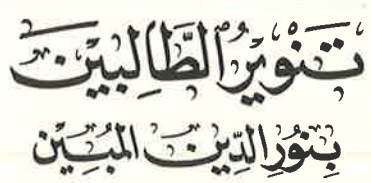 تَنْوِيْرُ الطَّالِبِيْنَ
بِنُوْرِ الدِّيْنِ الْمُبِيْن